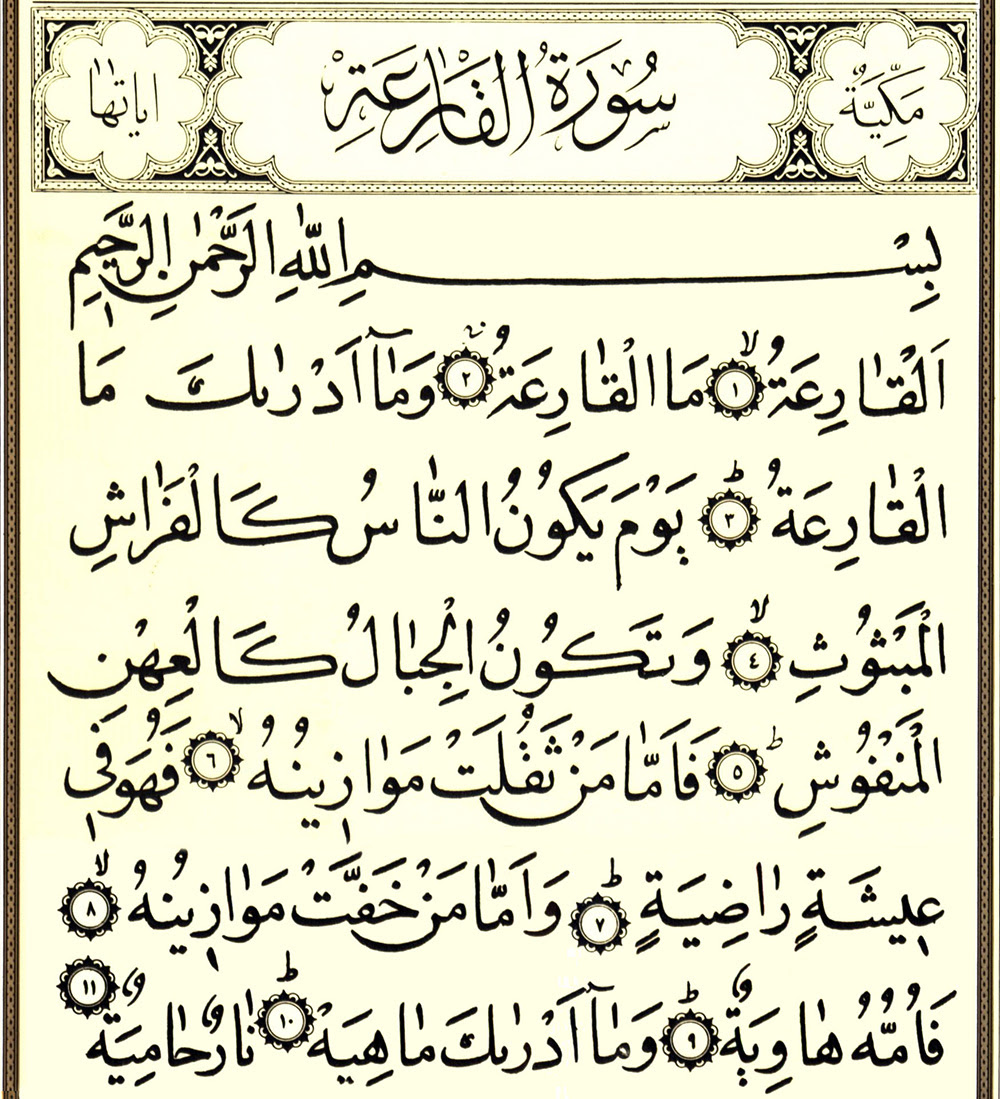 مَكِّيَّةٌ سُورَةُ الْقَارِعَةِ اياتها
بِسْمِ اللّٰهِ الرَّحْمٰنِ الرَّحٖيمِ
اَلْقَارِعَةُۙ ﴿١﴾ مَا الْقَارِعَةُۚ ﴿٢﴾ وَمَٓا اَدْرٰيكَ مَا
الْقَارِعَةُۜ ﴿٣﴾ يَوْمَ يَكُونُ النَّاسُ كَالْفَرَاشِ
الْمَبْثُوثِۙ ﴿٤﴾ وَتَكُونُ الْجِبَالُ كَالْعِهْنِ
الْمَنْفُوشِۜ ﴿٥﴾ فَاَمَّا مَنْ ثَقُلَتْ مَوَازٖينُهُۙ ﴿٦﴾ فَهُوَ فٖي
عٖيشَةٍ رَاضِيَةٍۜ ﴿٧﴾ وَاَمَّا مَنْ خَفَّتْ مَوَازٖينُهُۙ ﴿٨﴾
فَاُمُّهُ هَاوِيَةٌۜ ﴿٩﴾ وَمَٓا اَدْرٰيكَ مَاهِيَهْۜ ﴿١٠﴾ نَارٌ حَامِيَةٌ ﴿١١﴾